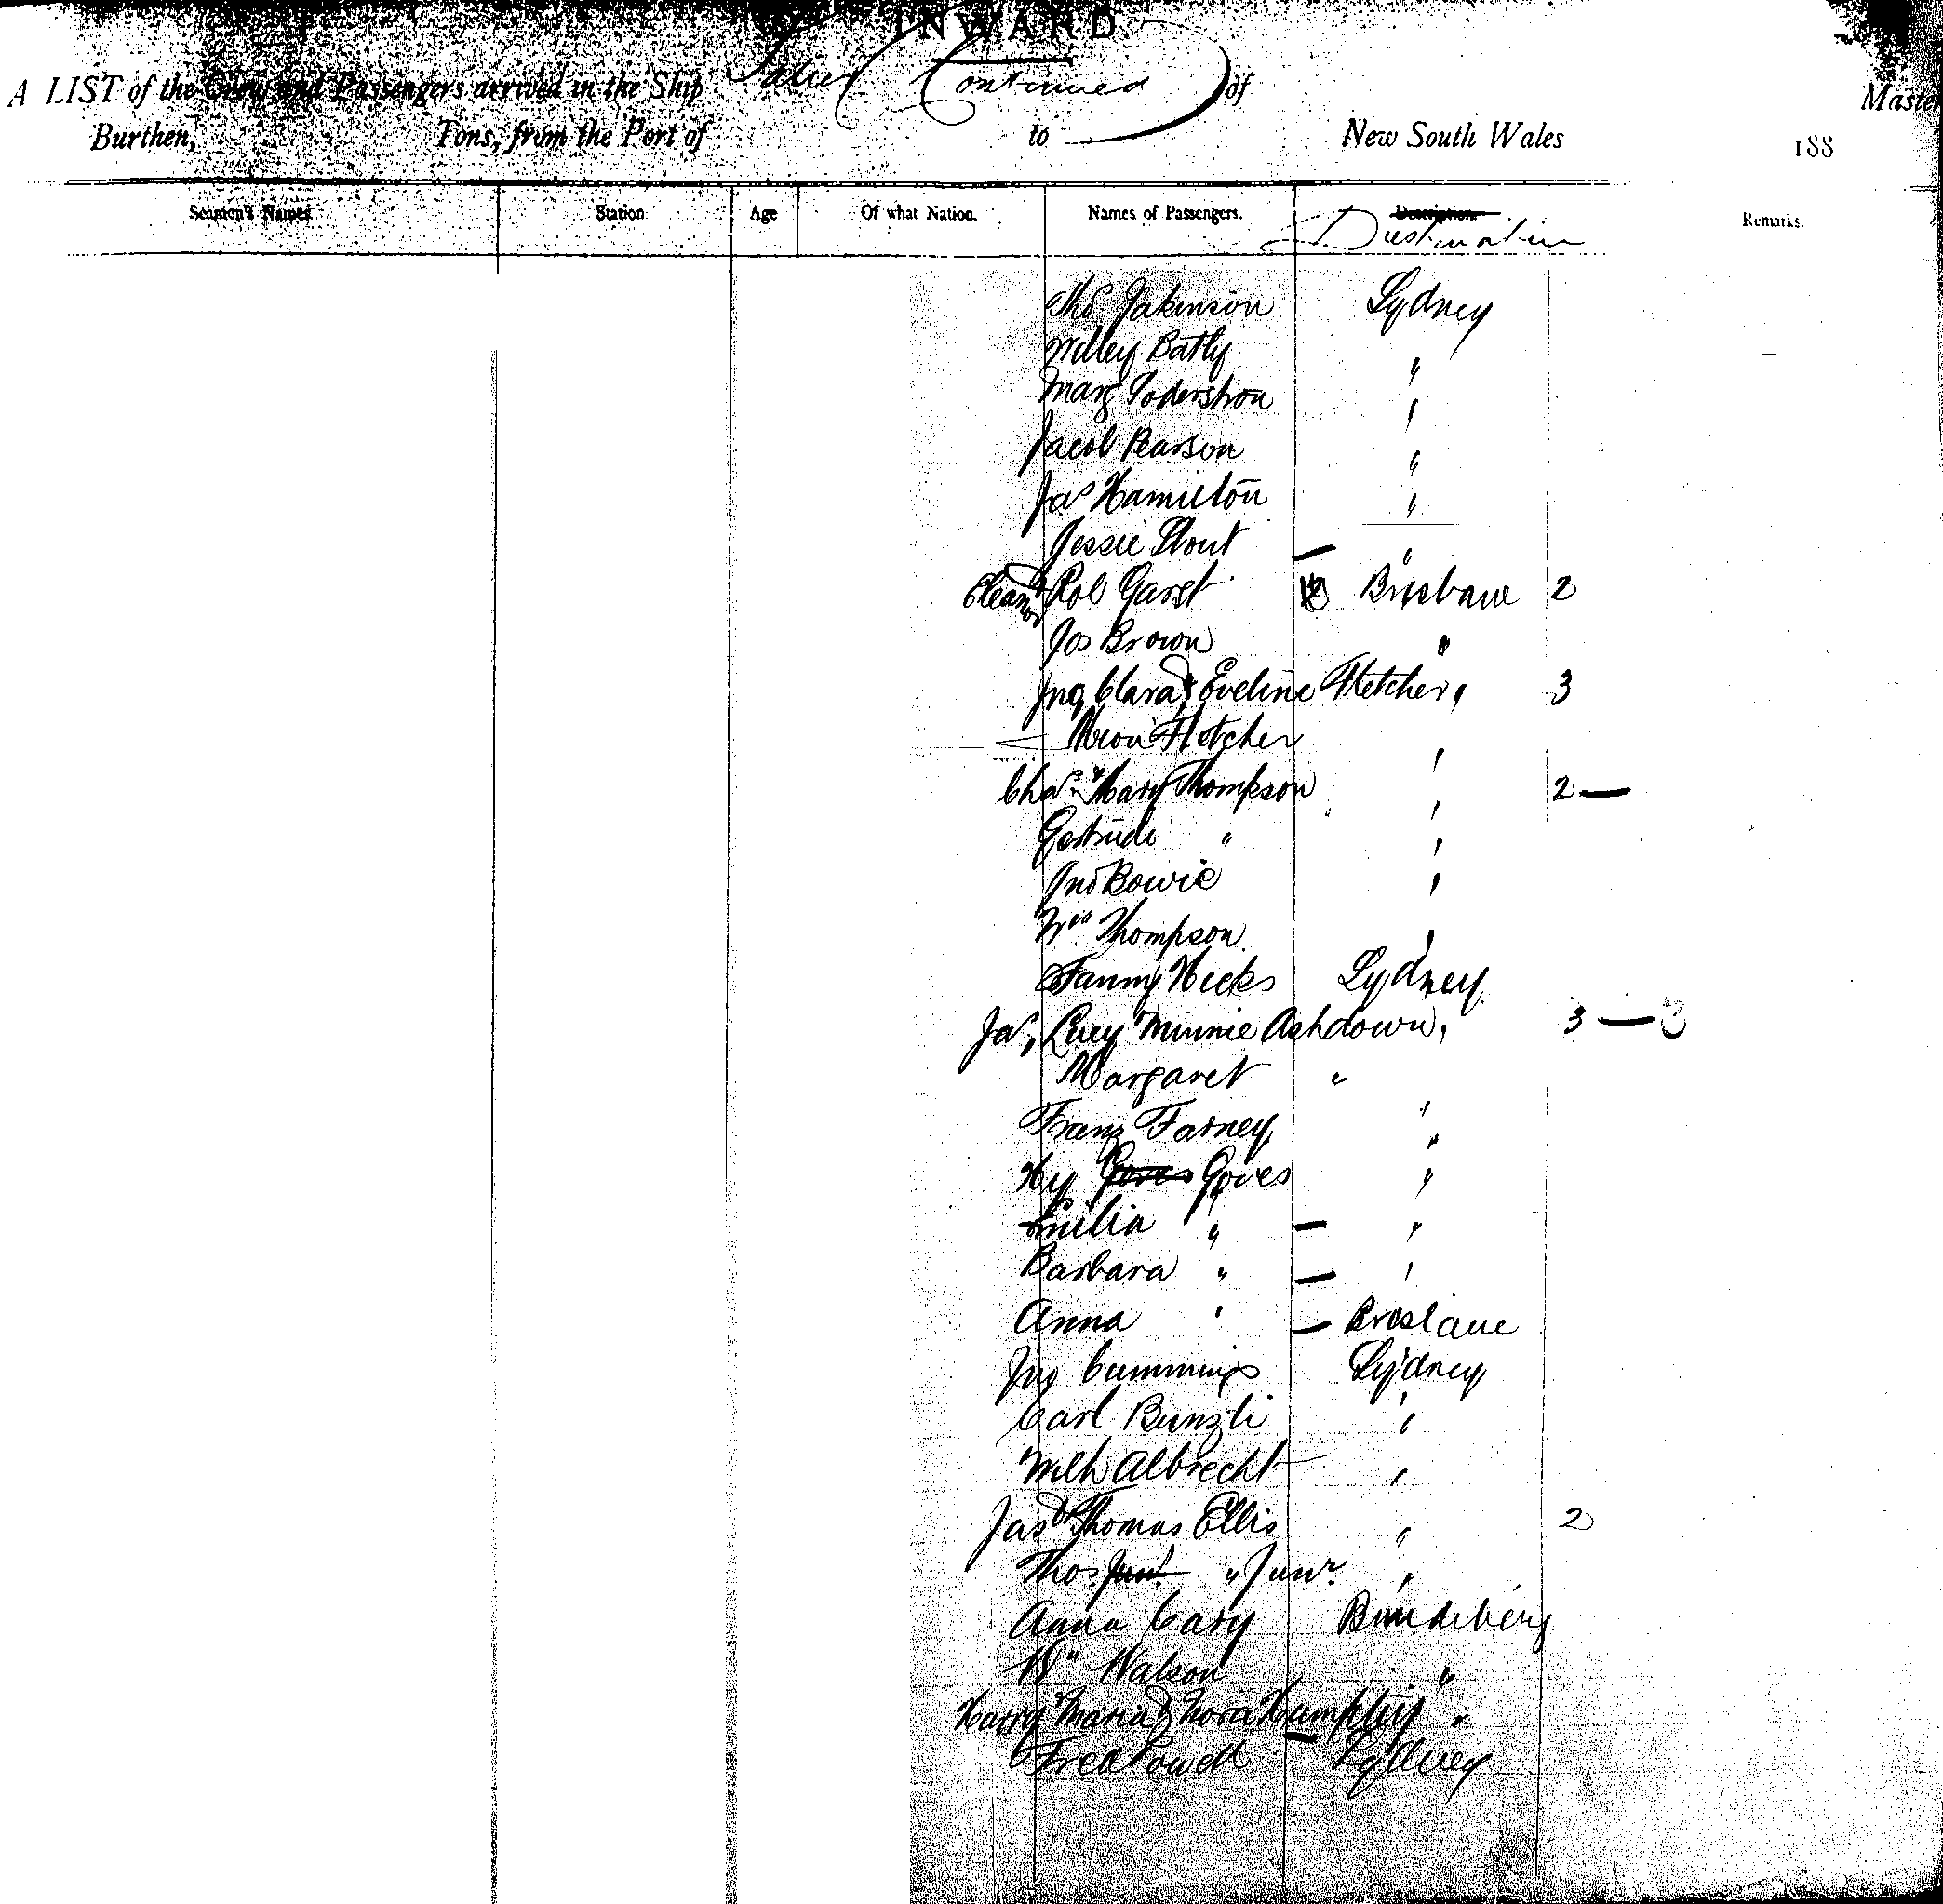 INWARD.
A LIST of the Crew and Passengers arrived in the Ship (Continued) of Master
Burthen, Tons, from the Port of to New South Wales 188
Seamen's Names. Station. Age Of what Nation. Names of Passengers. Description. Remarks.
Destination
Thos Jakinson Sydney
Willey Batty "
Marg "
Jacob Pearson "
Jas Hamilton "
Jessie Stout — "
Eleanor & Rob Garst Brisbane 2
Jos Brown "
Jno, Clara & Eveline Fletcher " 3
Fletcher "
Chas & Mary Thompson " 2 —
Gertrude " "
Jno Bowie "
Wm Thompson "
Fanny Hicks Sydney
Jas, Lucy Minnie Ashdown " 3 — 3
Margaret " "
Franz Farney "
Hy Goves Goves "
Emilia " — "
Barbara " — "
Anna " — Brisbane
Jno Cummings Sydney
Carl Bunzli "
Wilh Albrecht "
Jas & Thomas Ellis " 2
Thos Junr " Junr. "
Anna Cary Bundeberg
Wm Watson "
Harry Maria & Nora Humphry "
Fred Powell Sydney